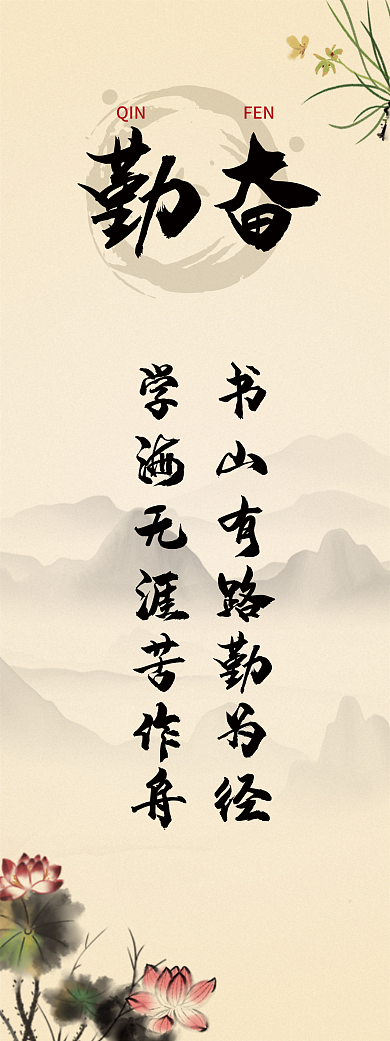 QIN FEN
勤奋
书山有路勤为径
学海无涯苦作舟